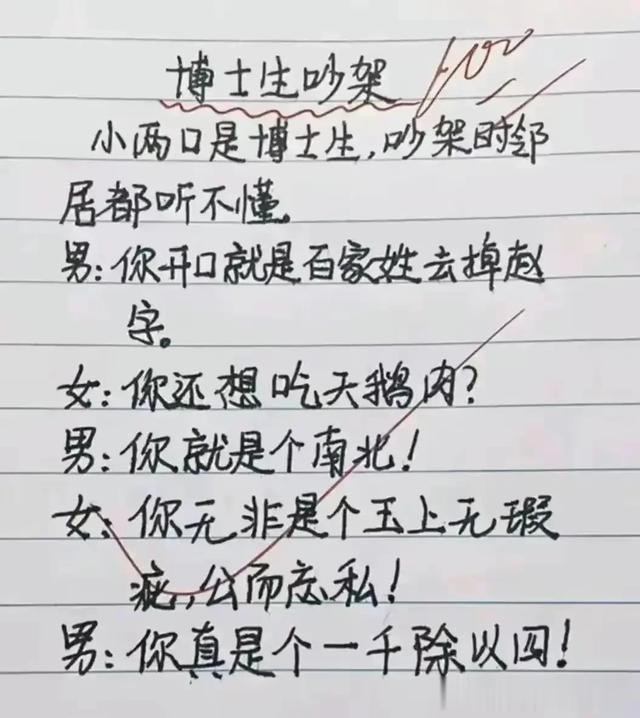 博士生吵架 100
小两口是博士生,吵架时邻
居都听不懂。
男:你开口就是百家姓去掉赵
字。
女:你还想吃天鹅肉?
男:你就是个南北!
女:你无非是个玉上无瑕
疵,公而忘私!
男:你真是个一千除以四!